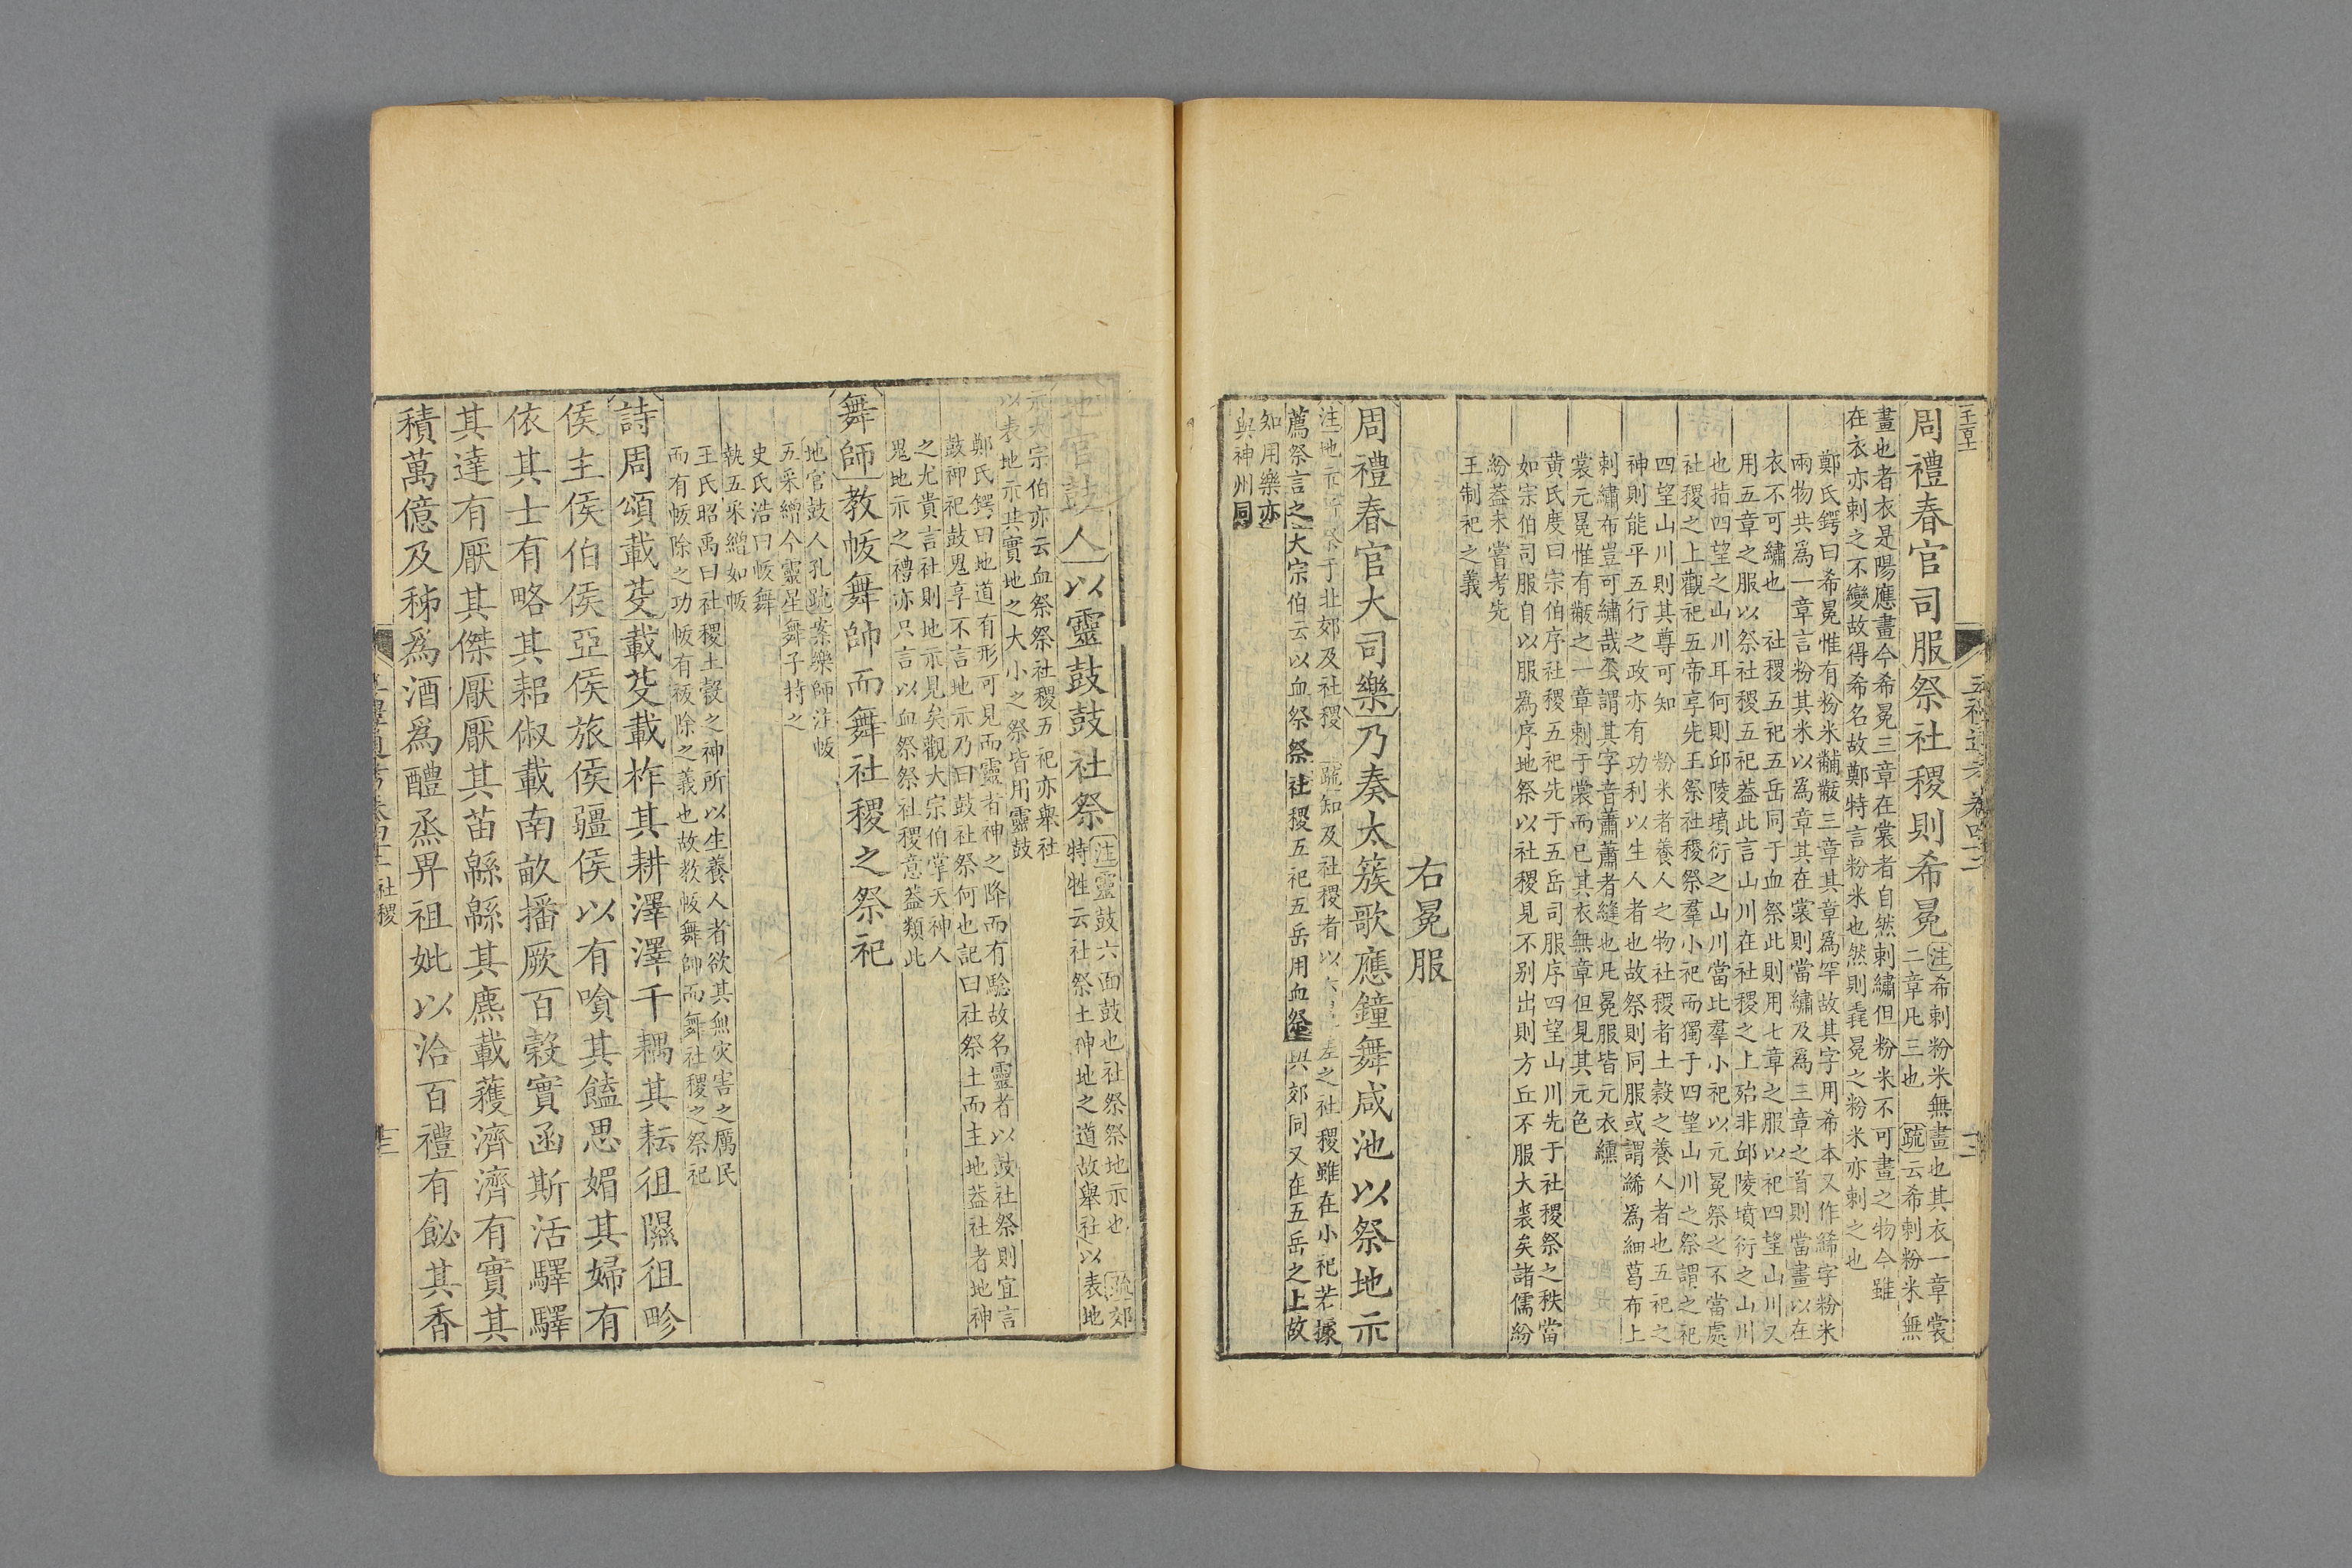 周禮春官司服祭社稷則希冕
注希刺粉米無畫也其衣一章裳
二章凡三也 疏云希刺粉米無
畫也者衣是陽應畫今希冕三章在裳者自然刺繡但粉米不可畫之物今雖
在衣亦刺之不變故得希名故鄭特言粉米也然則毳冕之粉米亦刺之也
鄭氏鍔曰希冕惟有粉米黼黻三章其章爲罕故其字用希本又作絺字粉米
兩物共爲一章言粉其米以爲章其在裳則當繡及爲三章之首則當畫以在
衣不可繡也 社稷五祀五岳同于血祭此則用七章之服以祀四望山川又
用五章之服以祭社稷五祀葢此言山川在社稷之上殆非邱陵墳衍之山川
也指四望之山川耳何則邱陵墳衍之山川當此羣小祀以元冕祭之不當處
社稷之上觀祀五帝享先王祭社稷祭羣小祀而獨于四望山川之祭謂之祀
四望山川則其尊可知 粉米者養人之物社稷者土穀之養人者也五祀之
神則能平五行之政亦有功利以生人者也故祭則同服或謂絺爲細葛布上
刺繡布豈可繡哉蓋謂其字音黹黹者縫也凡冕服皆元衣纁
裳元冕惟有黻之一章刺于裳而已其衣無章但見其元色
黃氏度曰宗伯序社稷五祀先于五岳司服序四望山川先于社稷祭之秩當
如宗伯司服自以服爲序地祭以社稷見不别出則方丘不服大裘矣諸儒紛
紛葢未嘗考先
王制祀之義
右冕服
周禮春官大司樂乃奏太簇歌應鐘舞咸池以祭地示
注地示 祭于北郊及社稷 疏知及社稷者以六 左之社稷雖在小祀若據
薦祭言之大宗伯云以血祭祭社稷五祀五岳用血祭與郊同又在五岳之上故
知用樂亦
與神州同
地官鼓人以靈鼓鼓社祭
注靈鼓六面鼓也社祭祭地示也 疏郊
特牲云社祭土神地之道故舉社以表地
示大宗伯亦云血祭祭社稷五祀亦舉社
以表地示其實地之大小之祭皆用靈鼓
鄭氏鍔曰地道有形可見而靈者神之降而有驗故名靈者以鼓社祭則宜言
鼓神祀鼓鬼享不言地示乃曰鼓社祭何也記曰社祭土而主地葢社者地神
之尤貴言社則地示見矣觀大宗伯掌天神人
鬼地示之禮亦只言以血祭祭社稷意葢類此
舞師教帗舞舞帥而舞社稷之祭祀
地官鼓人孔疏案樂師注帗
五采繒今靈星舞子持之
史氏浩曰帗舞
執五采繒如帗
王氏昭禹曰社稷土穀之神所以生養人者欲其無灾害之厲民
而有帗除之功帗有祓除之義也故教帗舞帥而舞社稷之祭祀
詩周頌載芟載芟載柞其耕澤澤千耦其耘徂隰徂畛
侯主侯伯侯亞侯旅侯疆侯以有噲其饁思媚其婦有
依其士有略其耜俶載南畝播厥百穀實函斯活驛驛
其達有厭其傑厭厭其苗緜緜其麃載穫濟濟有實其
積萬億及秭爲酒爲醴烝畀祖妣以洽百禮有飶其香